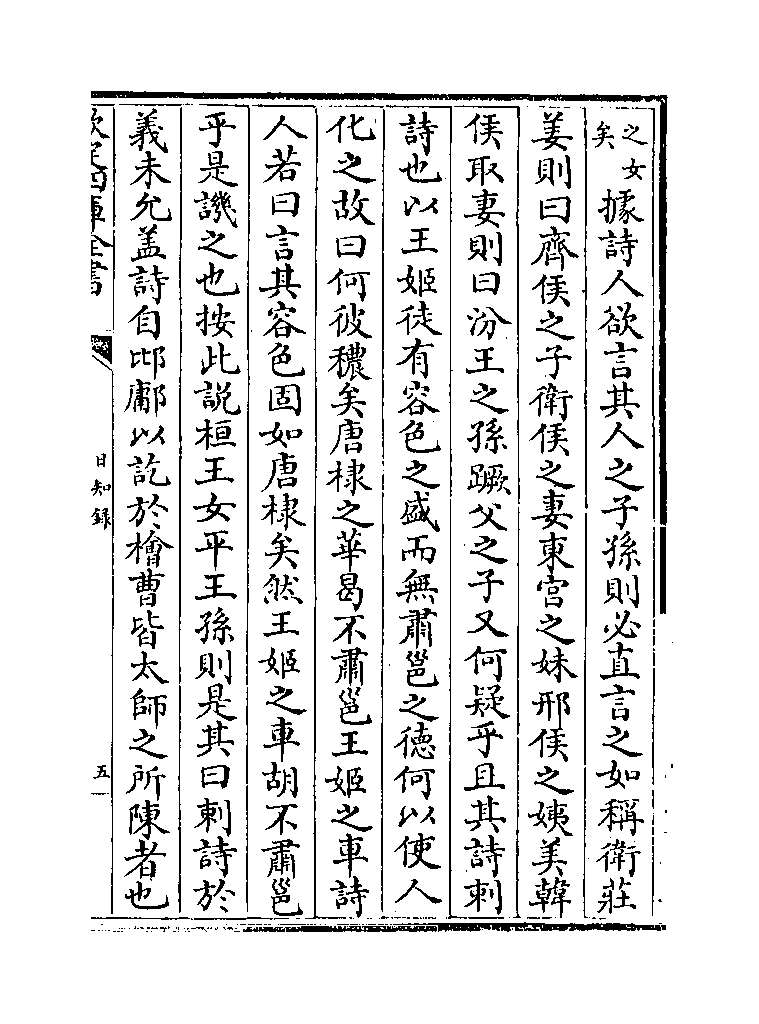 之女
矣
據詩人欲言其人之子孫則必直言之如稱衛莊
姜則曰齊侯之子衛侯之妻東宮之妹邢侯之姨美韓
侯取妻則曰汾王之孫蹶父之子又何疑乎且其詩刺
詩也以王姬徒有容色之盛而無肅邕之德何以使人
化之故曰何彼穠矣唐棣之華曷不肅邕王姬之車詩
人若曰言其容色固如唐棣矣然王姬之車胡不肅邕
乎是譏之也按此説桓王女平王孫則是其曰刺詩於
義未允葢詩自邶鄘以訖於檜曹皆太師之所陳者也
欽定四庫全書
日知錄
五